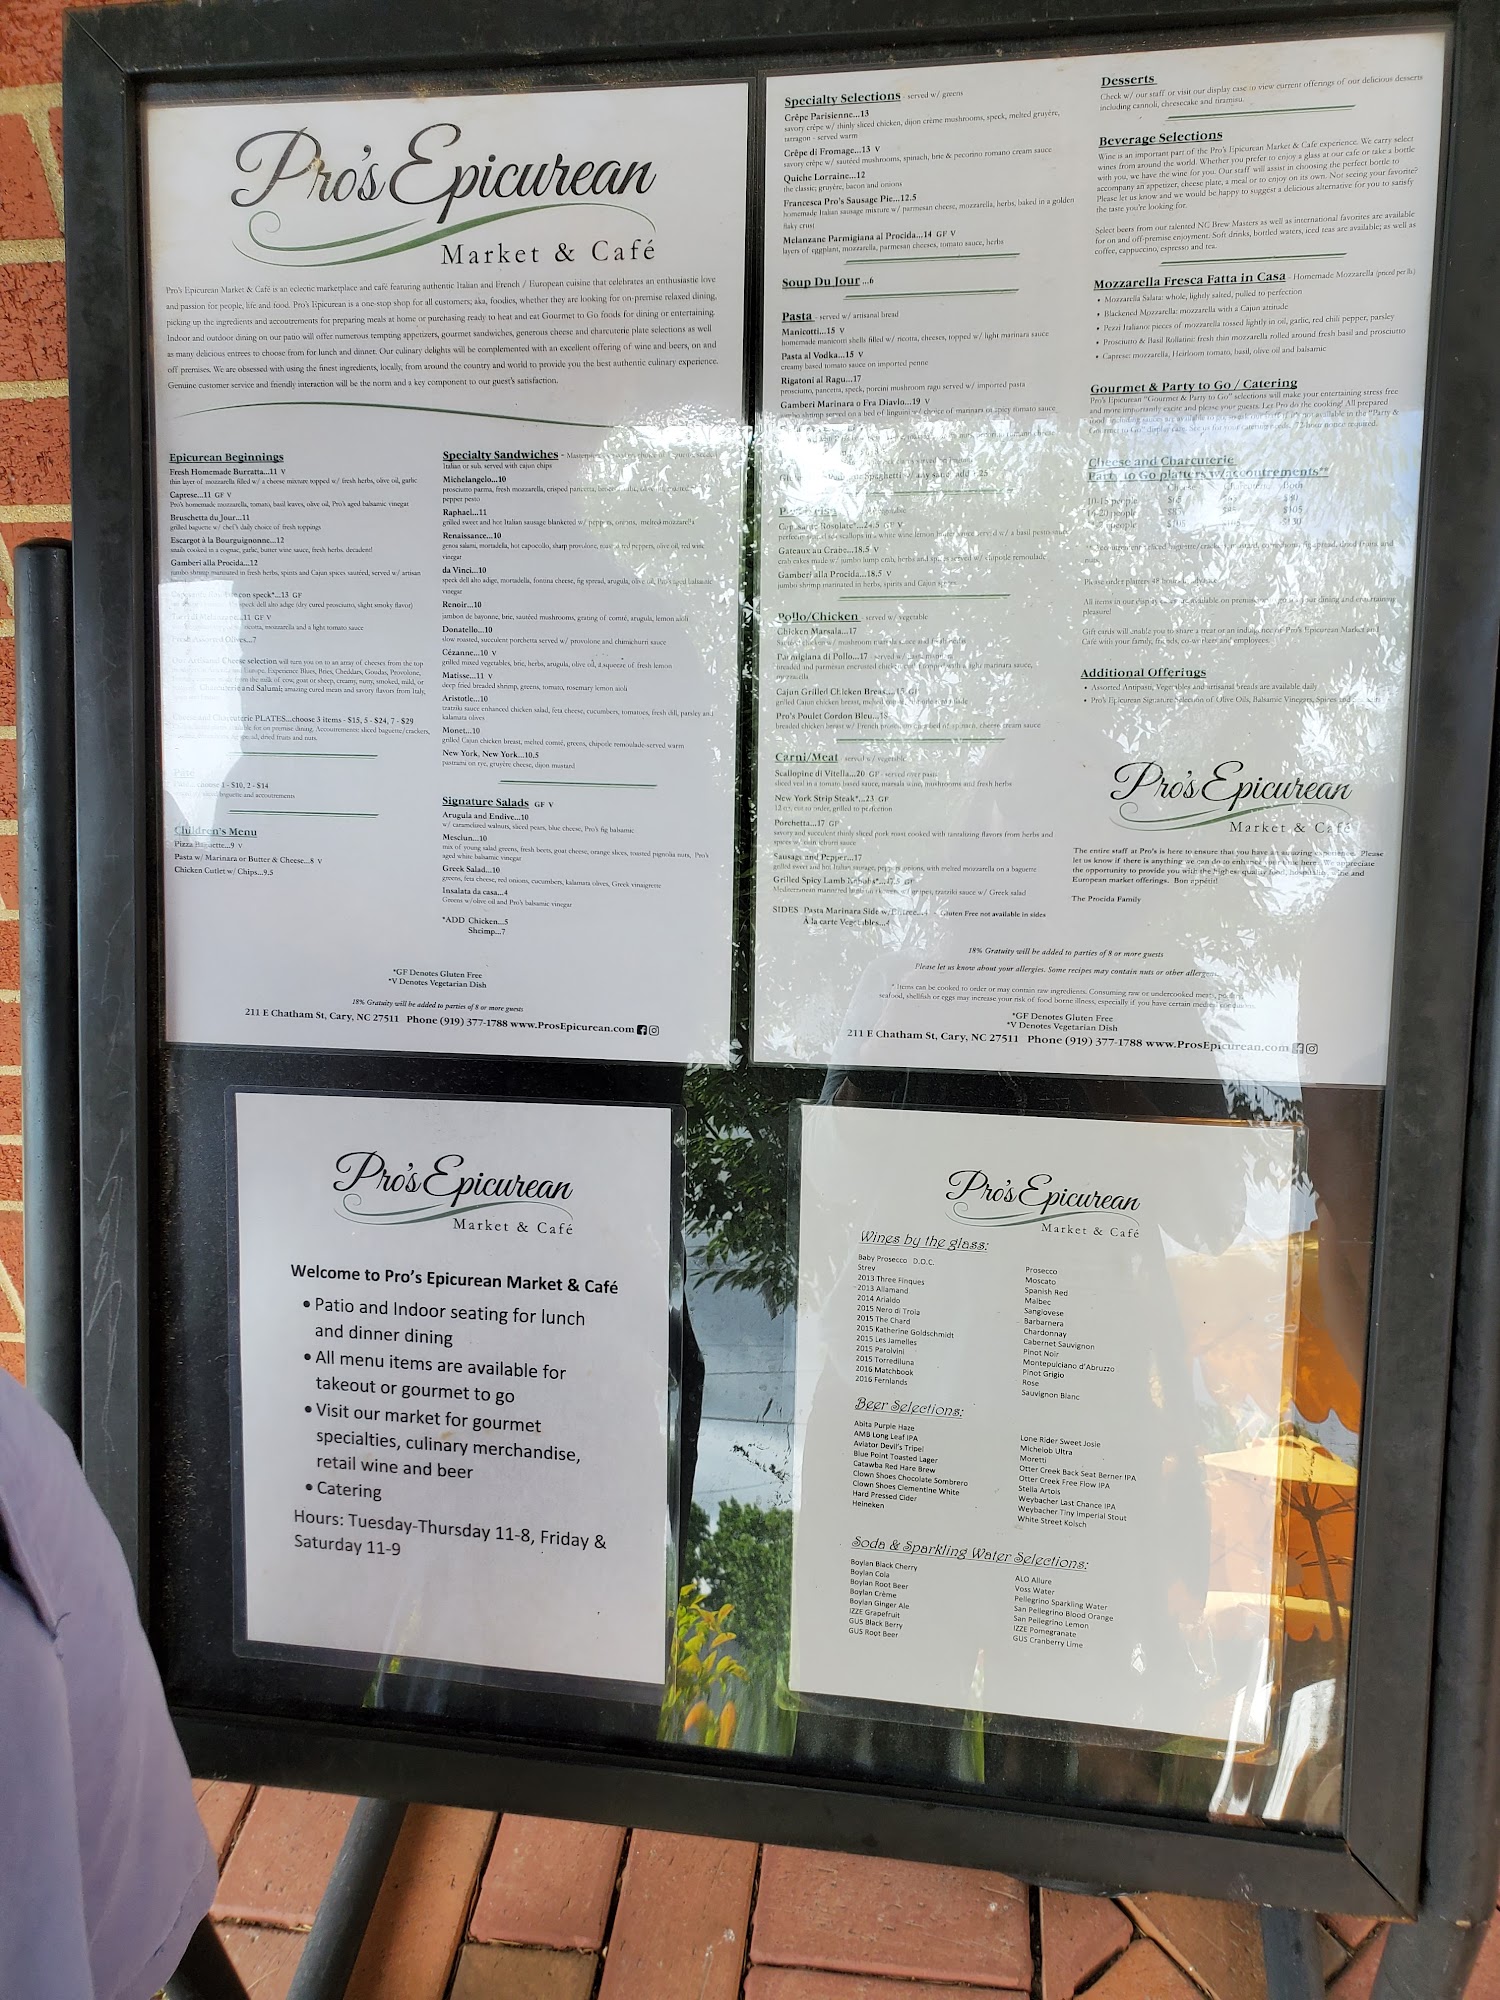 Pro's Epicurean
Market & Café
Pro's Epicurean Market & Café is an eclectic marketplace and café featuring authentic Italian and French / European cuisine that celebrates an enthusiastic love
and passion for people, life and food. Pro's Epicurean is a one-stop shop for all customers; aka, foodies, whether they are looking for on-premise relaxed dining,
picking up the ingredients and accoutrements for preparing meals at home or purchasing ready to heat and eat Gourmet to Go foods for dining or entertaining.
Indoor and outdoor dining on our patio will offer numerous tempting appetizers, gourmet sandwiches, generous cheese and charcuterie plate selections as well
as many delicious entrees to choose from for lunch and dinner. Our culinary delights will be complemented with an excellent offering of wine and beers, on and
off premises. We are obsessed with using the finest ingredients, locally, from around the country and world to provide you the best authentic culinary experience.
Genuine customer service and friendly interaction will be the norm and a key component to our guest's satisfaction.
Epicurean Beginnings
Fresh Homemade Burratta...11 V
thin layer of mozzarella filled w/ a cheese mixture topped w/ fresh herbs, olive oil, garlic
Caprese...11 GF V
Pro's homemade mozzarella, tomato, basil leaves, olive oil, Pro's aged balsamic vinegar
Bruschetta du Jour...11
grilled baguette w/ chef's daily choice of fresh toppings
Escargot à la Bourguignonne...12
snails cooked in a cognac, garlic, butter wine sauce, fresh herbs, decadent!
Gamberi alla Procida...12
jumbo shrimp marinated in fresh herbs, spirits and Cajun spices sautéed, served w/ artisan
con speck*...13 GF
speck dell alto adige (dry cured prosciutto, slight smoky flavor)
...11 GF V
ricotta, mozzarella and a light tomato sauce
Olives...7
Cheese selection will turn you on to an array of cheeses from the top
Europe. Experience Blues, Bries, Cheddars, Goudas, Provolone,
from the milk of cow, goat or sheep, creamy, nutty, smoked, mild, or
Charcuterie and Salumi; amazing cured meats and savory flavors from Italy,
Charcuterie PLATES...choose 3 items - $15, 5 - $24, 7 - $29
available for on premise dining. Accoutrements: sliced baguette/crackers,
dried fruits and nuts.
Pâté
choose 1 - $10, 2 - $14
baguette and accoutrements
Children's Menu
Pizza Baguette...9 V
Pasta w/ Marinara or Butter & Cheese...8 V
Chicken Cutlet w/ Chips...9.5
Specialty Sandwiches -
Italian or sub, served with cajun chips
Michelangelo...10
prosciutto parma, fresh mozzarella, crisped pancetta,
pepper pesto
Raphael...11
grilled sweet and hot Italian sausage blanketed w/ peppers, onions, melted mozzarella
Renaissance...10
genoa salami, mortadella, hot capocollo, sharp provolone, roasted red peppers, olive oil, red wine
vinegar
da Vinci...10
speck dell alto adige, mortadella, fontina cheese, fig spread, arugula, olive oil, Pro's aged balsamic
vinegar
Renoir...10
jambon de bayonne, brie, sautéed mushrooms, grating of comté, arugula, lemon aioli
Donatello...10
slow roasted, succulent porchetta served w/ provolone and chimichurri sauce
Cézanne...10 V
grilled mixed vegetables, brie, herbs, arugula, olive oil, a squeeze of fresh lemon
Matisse...11 V
deep fried breaded shrimp, greens, tomato, rosemary lemon aioli
Aristotle...10
tzatziki sauce enhanced chicken salad, feta cheese, cucumbers, tomatoes, fresh dill, parsley and
kalamata olives
Monet...10
grilled Cajun chicken breast, melted comté, greens, chipotle remoulade-served warm
New York, New York...10.5
pastrami on rye, gruyère cheese, dijon mustard
Signature Salads GF V
Arugula and Endive...10
w/ caramelized walnuts, sliced pears, blue cheese, Pro's fig balsamic
Mesclun...10
mix of young salad greens, fresh beets, goat cheese, orange slices, toasted pignolia nuts, Pro's
aged white balsamic vinegar
Greek Salad...10
greens, feta cheese, red onions, cucumbers, kalamata olives, Greek vinaigrette
Insalata da casa...4
Greens w/olive oil and Pro's balsamic vinegar
*ADD Chicken...5
Shrimp...7
*GF Denotes Gluten Free
*V Denotes Vegetarian Dish
18% Gratuity will be added to parties of 8 or more guests
211 E Chatham St, Cary, NC 27511 Phone (919) 377-1788 www.ProsEpicurean.com
Specialty Selections - served w/ greens
Crêpe Parisienne...13
savory crêpe w/ thinly sliced chicken, dijon crème mushrooms, speck, melted gruyère,
tarragon - served warm
Crêpe di Fromage...13 V
savory crêpe w/ sautéed mushrooms, spinach, brie & pecorino romano cream sauce
Quiche Lorraine...12
the classic; gruyère, bacon and onions
Francesca Pro's Sausage Pie...12.5
homemade Italian sausage mixture w/ parmesan cheese, mozzarella, herbs, baked in a golden
flaky crust
Melanzane Parmigiana al Procida...14 GF V
layers of eggplant, mozzarella, parmesan cheeses, tomato sauce, herbs
Soup Du Jour ...6
Pasta - served w/ artisanal bread
Manicotti...15 V
homemade manicotti shells filled w/ ricotta, cheeses, topped w/ light marinara sauce
Pasta al Vodka...15 V
creamy based tomato sauce on imported penne
Rigatoni al Ragu...17
prosciutto, pancetta, speck, porcini mushroom ragu served w/ imported pasta
Gamberi Marinara o Fra Diavlo...19 V
jumbo shrimp served on a bed of linguini w/ choice of marinara or spicy tomato sauce
Spaghetti w/ any sauce add 1.25
Capesante Rosolate*...24.5 GF V
Gateaux au Crabe...18.5 V
crab cakes made w/ jumbo lump crab, herbs and spices served w/ chipotle remoulade
Gamberi alla Procida...18.5 V
jumbo shrimp marinated in herbs, spirits and Cajun spices
Pollo/Chicken - served w/ vegetable
Chicken Marsala...17
Parmigiana di Pollo...17 -
breaded and parmesan encrusted chicken topped with a light marinara sauce,
mozzarella
Cajun Grilled Chicken Breast...15
grilled Cajun chicken breast, melted
Pro's Poulet Cordon Bleu...18
breaded chicken breast w/ French prosciutto spinach, cheese cream sauce
Carni/Meat - served w/ vegetable
Scallopine di Vitella...20 GF - served over pasta
sliced veal in a tomato based sauce, marsala wine, mushrooms and fresh herbs
New York Strip Steak*...23 GF
12 oz. cut to order, grilled to perfection
Porchetta...17 GF
savory and succulent thinly sliced pork roast cooked with tantalizing flavors from herbs and
spices w/ chimichurri sauce
Sausage and Pepper...17
grilled sweet and hot Italian sausage, peppers, onions, with melted mozzarella on a baguette
Grilled Spicy Lamb Kebobs*...17.5 GF
Mediterranean marinated lamb on skewer, w/ tzatziki sauce w/ Greek salad
SIDES Pasta Marinara Side w/Entree...4 - Gluten Free not available in sides
À la carte Vegetables...4
Desserts
Check w/ our staff or visit our display case to view current offerings of our delicious desserts
including cannoli, cheesecake and tiramisu.
Beverage Selections
Wine is an important part of the Pro's Epicurean Market & Cafe experience. We carry select
wines from around the world. Whether you prefer to enjoy a glass at our cafe or take a bottle
with you, we have the wine for you. Our staff will assist in choosing the perfect bottle to
accompany an appetizer, cheese plate, a meal or to enjoy on its own. Not seeing your favorite?
Please let us know and we would be happy to suggest a delicious alternative for you to satisfy
the taste you're looking for.
Select beers from our talented NC Brew Masters as well as international favorites are available
for on and off-premise enjoyment. Soft drinks, bottled waters, iced teas are available; as well as
coffee, cappuccino, espresso and tea.
Mozzarella Fresca Fatta in Casa - Homemade Mozzarella (priced per lb.)
• Mozzarella Salata: whole, lightly salted, pulled to perfection
• Blackened Mozzarella: mozzarella with a Cajun attitude
• Pezzi Italiano: pieces of mozzarella tossed lightly in oil, garlic, red chili pepper, parsley
• Prosciutto & Basil Rollatini: fresh thin mozzarella rolled around fresh basil and prosciutto
• Caprese: mozzarella, Heirloom tomato, basil, olive oil and balsamic
Gourmet & Party to Go / Catering
Pro's Epicurean "Gourmet & Party to Go" selections will make your entertaining stress free
and more importantly excite and please your guests. Let Pro do the cooking! All prepared
"Party &
Gourmet to Go" display case. See us for your catering needs. 72 hour notice required.
Cheese and Charcuterie
Party to Go platters w/accoutrements**
10-15 people
people
people
Please order platters 48 hours in advance
All items in our display case are available on premise dining and entertaining
pleasure!
Gift cards will enable you to share a treat or an indulgence of Pro's Epicurean Market and
Café with your family, friends, co-workers and employees.
Additional Offerings
• Assorted Antipasti, Vegetables and artisanal breads are available daily
• Pro's Epicurean Signature Selection of Olive Oils, Balsamic Vinegars, Spices and
Pro's Epicurean
Market & Café
The entire staff at Pro's is here to ensure that you have an amazing experience. Please
let us know if there is anything we can do to enhance your time here. We appreciate
the opportunity to provide you with the highest quality food, hospitality, wine and
European market offerings. Bon appetit!
The Procida Family
18% Gratuity will be added to parties of 8 or more guests
Please let us know about your allergies. Some recipes may contain nuts or other allergens.
* Items can be cooked to order or may contain raw ingredients. Consuming raw or undercooked meats, poultry,
seafood, shellfish or eggs may increase your risk of food borne illness, especially if you have certain medical conditions.
*GF Denotes Gluten Free
*V Denotes Vegetarian Dish
211 E Chatham St, Cary, NC 27511 Phone (919) 377-1788 www.ProsEpicurean.com
Pro's Epicurean
Market & Café
Welcome to Pro's Epicurean Market & Café
• Patio and Indoor seating for lunch
and dinner dining
• All menu items are available for
takeout or gourmet to go
• Visit our market for gourmet
specialties, culinary merchandise,
retail wine and beer
• Catering
Hours: Tuesday-Thursday 11-8, Friday &
Saturday 11-9
Pro's Epicurean
Market & Café
Wines by the glass:
Baby Prosecco D.O.C.
Strev
2013 Three Finques
2013 Allamand
2014 Arialdo
2015 Nero di Troia
2015 The Chard
2015 Katherine Goldschmidt
2015 Les Jamelles
2015 Parolvini
2015 Torrediluna
2016 Matchbook
2016 Fernlands
Prosecco
Moscato
Spanish Red
Malbec
Sangiovese
Barbarnera
Chardonnay
Cabernet Sauvignon
Pinot Noir
Montepulciano d'Abruzzo
Pinot Grigio
Rose
Sauvignon Blanc
Beer Selections:
Abita Purple Haze
AMB Long Leaf IPA
Aviator Devil's Tripel
Blue Point Toasted Lager
Catawba Red Hare Brew
Clown Shoes Chocolate Sombrero
Clown Shoes Clementine White
Hard Pressed Cider
Heineken
Lone Rider Sweet Josie
Michelob Ultra
Moretti
Otter Creek Back Seat Berner IPA
Otter Creek Free Flow IPA
Stella Artois
Weybacher Last Chance IPA
Weybacher Tiny Imperial Stout
White Street Kolsch
Soda & Sparkling Water Selections:
Boylan Black Cherry
Boylan Cola
Boylan Root Beer
Boylan Crème
Boylan Ginger Ale
IZZE Grapefruit
GUS Black Berry
GUS Root Beer
ALO Allure
Voss Water
Pellegrino Sparkling Water
San Pellegrino Blood Orange
San Pellegrino Lemon
IZZE Pomegranate
GUS Cranberry Lime